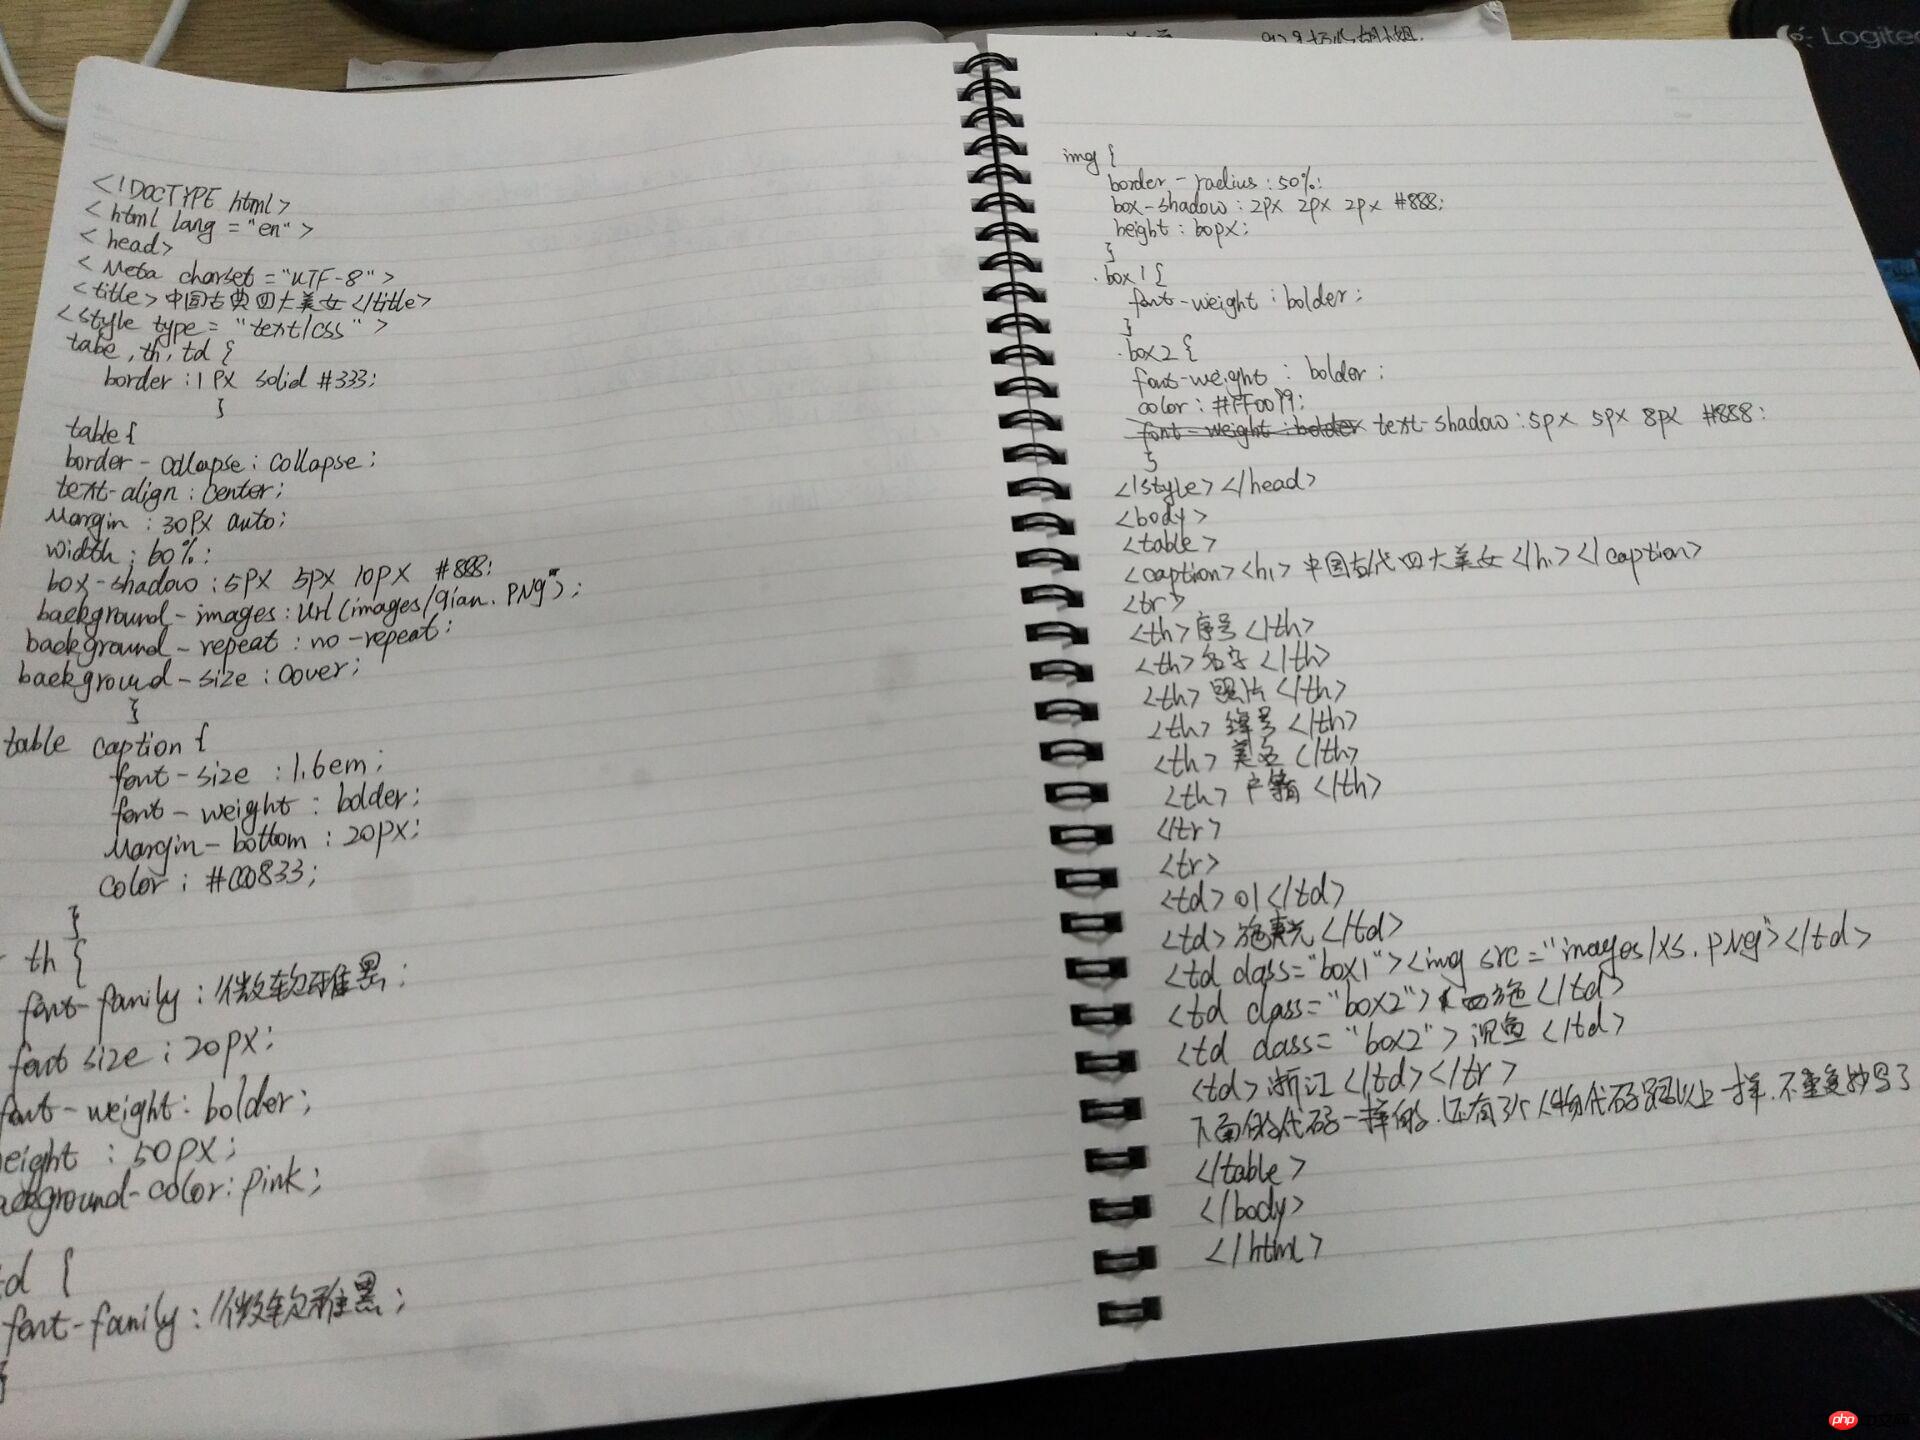 Logitec
<!DOCTYPE html>
<html lang="en">
<head>
<Meta charset="UTF-8">
<title>中国古典四大美女</title>
<style type="text/css">
tabe,th,td {
border:1PX solid #333;
}
table{
border-collapse:collapse;
text-align:center;
Margin:30PX auto;
width:60%;
box-shadow:5PX 5PX 10PX #888;
background-images:Url(images/qian.PNg");
background-repeat:no-repeat;
background-size:Cover;
}
table caption{
font-size:1.6em;
font-weight:bolder;
Margin-bottom:20PX;
Color:#CC0833;
}
th{
font-family:"微软雅黑;
font size:20PX;
font-weight:bolder;
eight:50PX;
ackground-color:Pink;
td {
font-family:"微软雅黑;
}
img{
border-radius:50%;
box-shadow:2PX 2PX 2PX #888;
height:60PX;
}
.box1{
font-weight:bolder;
}
.box2{
font-weight:bolder;
color:#FF0099;
font-weight:bolder text-shadow:5PX 5PX 8PX #888;
}
</style></head>
<body>
<table>
<caption><h1>中国古代四大美女</h1></caption>
<tr>
<th>序号</th>
<th>名字</th>
<th>照片</th>
<th>绰号</th>
<th>美名</th>
<th>户籍</th>
</tr>
<tr>
<td>01</td>
<td>施夷光</td>
<td class="box1"><img src="images/xs.PNg"></td>
<td class="box2">西施</td>
<td class="box2">沉鱼</td>
<td>浙江</td></tr>
下面的代码一样的.还有3个人物代码跟以上一样.不重复抄写了
</table>
</body>
</html>
php